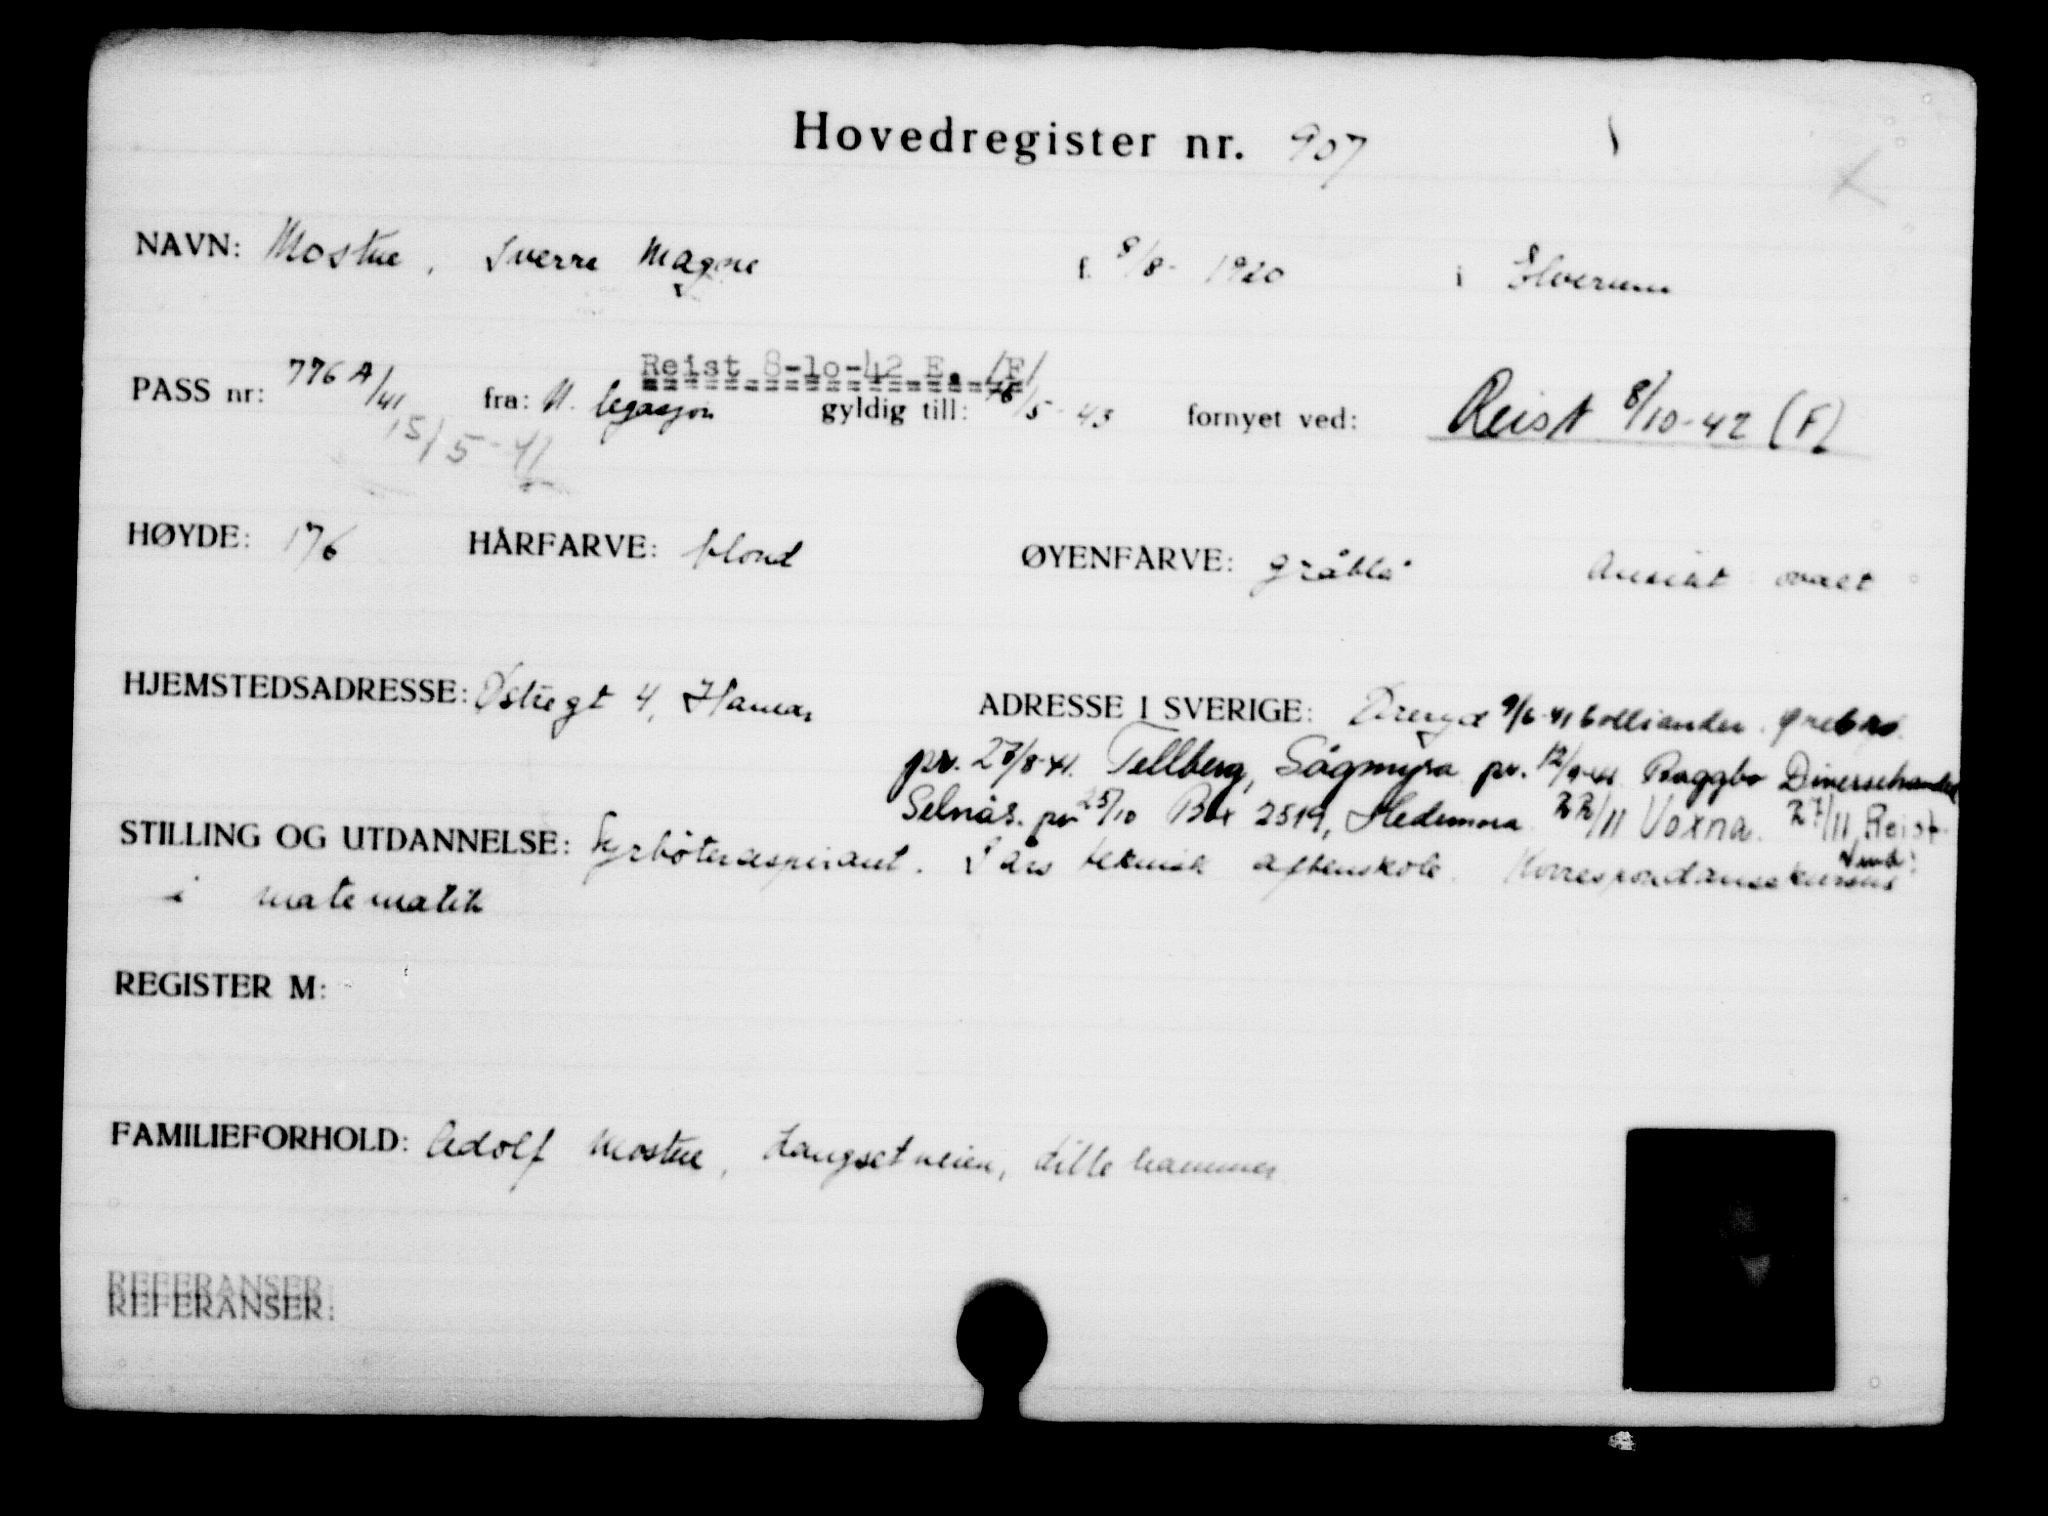 Hovedregister nr. 907
NAVN: Mostue, Sverre Magne f. 9/8- 1920 i Elverum
Reist 8-10-42 E. (F)
PASS nr: 776 A/41 fra: N. legasjon gyldig till: /5-43 fornyet ved: Reist 8/10-42 (F)
15/5-41
HØYDE: 176 HÅRFARVE: blond ØYENFARVE: gråblå Ansikt ovalt
HJEMSTEDSADRESSE: Østregt 4, Hamar ADRESSE I SVERIGE: 9/6-41 Örebro.
pr. 27/8-41. Tellberg, Sågmyra pr. 12/9-41 Baggbo Diversehandel
Selnäs. pr 25/10 Box 2519, Hedemora 22/11 Voxna. 27/11 Reist
STILLING OG UTDANNELSE: Fyrbøteraspirant. 1 års teknisk aftenskole. Korrespondansekursus
i matematik
REGISTER M:
FAMILIEFORHOLD: Adolf Mostue, Langsetveien, Lillehammer
REFERANSER:
REFERANSER: